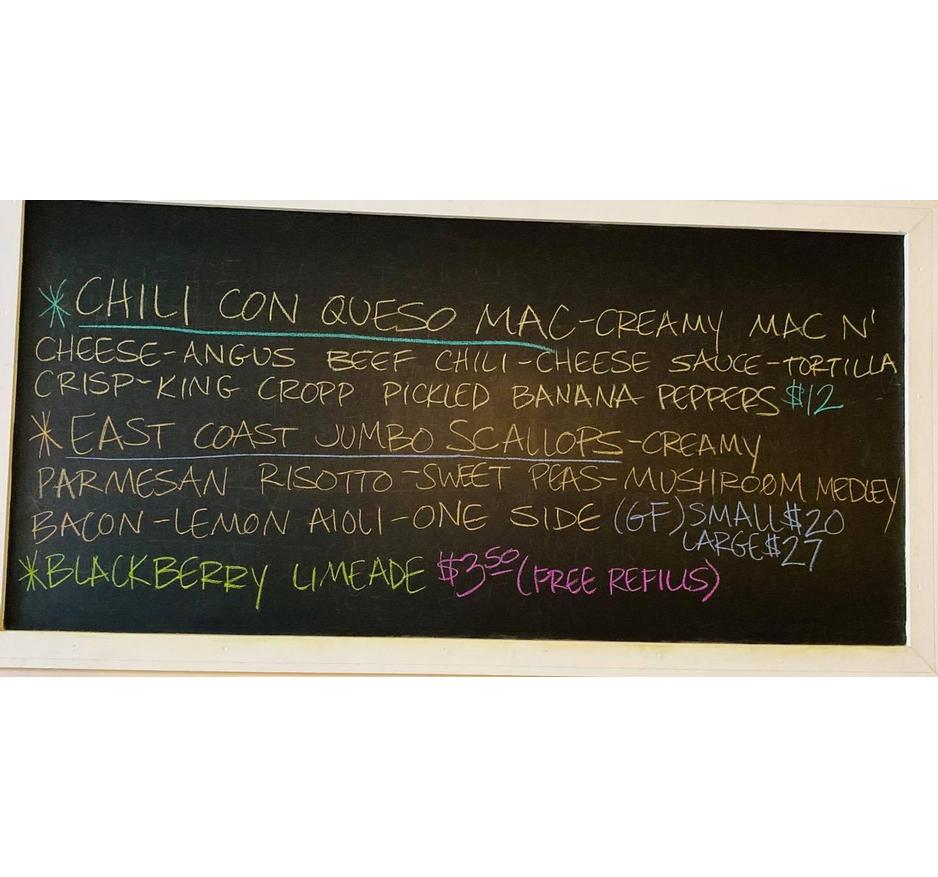 *CHILI CON QUESO MAC-CREAMY MAC N'
CHEESE-ANGUS BEEF CHILI-CHEESE SAUCE-TORTILLA
CRISP-KING CROPP PICKLED BANANA PEPPERS $12
*EAST COAST JUMBO SCALLOPS-CREAMY
PARMESAN RISOTTO-SWEET PEAS-MUSHROOM MEDLEY
BACON-LEMON AIOLI-ONE SIDE (GF) SMALL $20
LARGE $27
*BLACKBERRY LIMEADE $3.50 (FREE REFILLS)